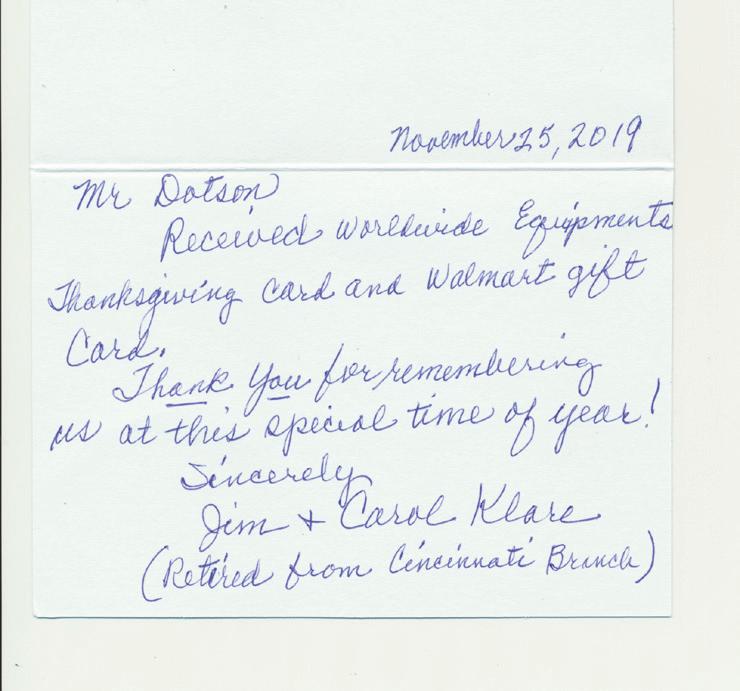 November 25, 2019
Mr Dotson
Received Worldwide Equipments
Thanksgiving Card and Walmart gift
Card.
Thank You for remembering
us at this special time of year!
Sincerely
Jim + Carol Klare
(Retired from Cincinnati Branch)